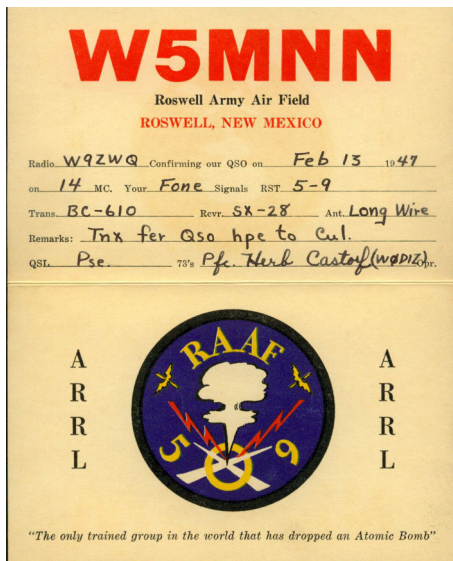 W5MNN
Roswell Army Air Field
ROSWELL, NEW MEXICO
Radio W9ZWQ Confirming our QSO on Feb 13 1947
on 14 MC. Your Fone Signals RST 5-9
Trans. BC-610 Recvr. SX-28 Ant. Long Wire
Remarks: Tnx fer Qso hpe to Cul.
QSL Pse. 73's Pfc. Herb Castorf (WØDIZ) Opr.
ARRL
RAAF
5 9
ARRL
"The only trained group in the world that has dropped an Atomic Bomb"